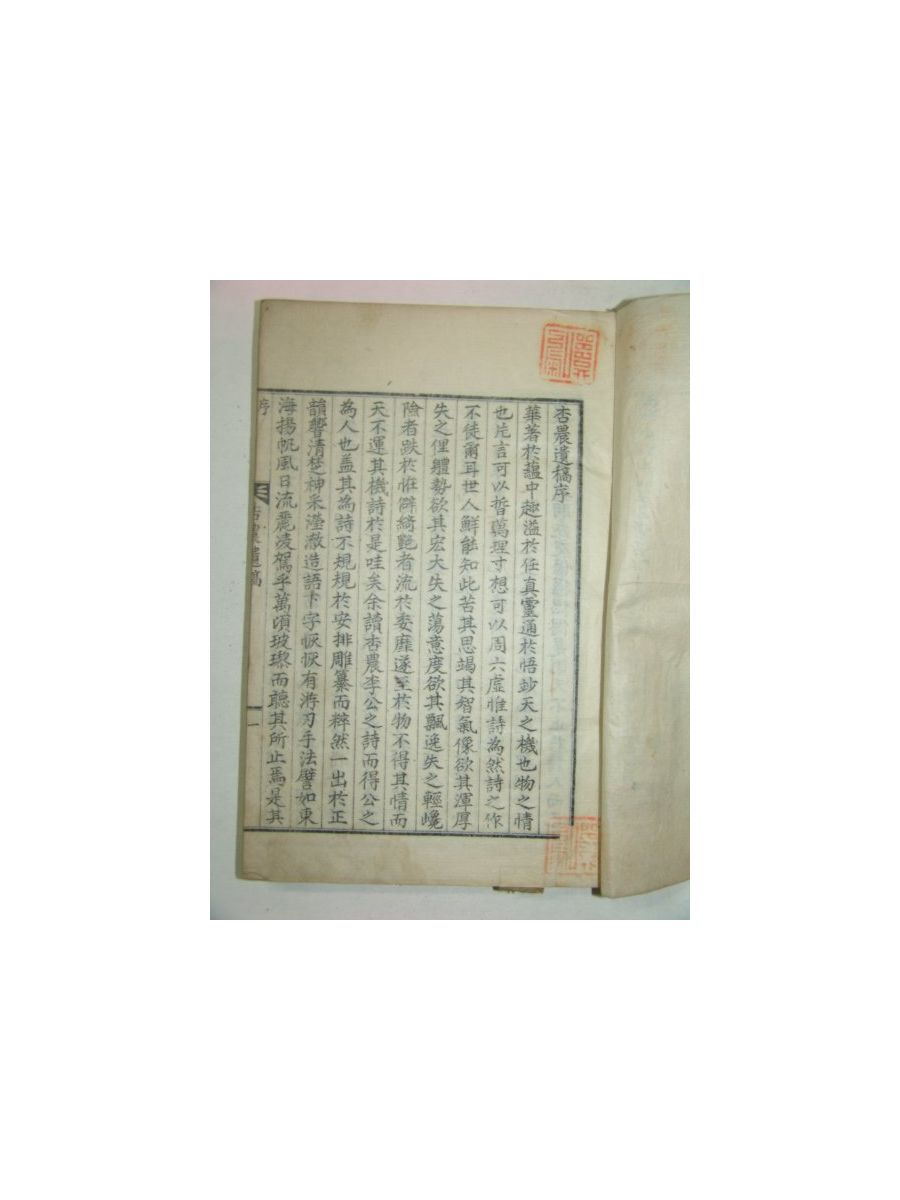 杏農遺稿序
華著於蘊中趣溢於任真靈通於悟鈔天之機也物之情
也片言可以哲萬理寸想可以周六虛惟詩為然詩之作
不徒爾耳世人鮮能知此苦其思竭其智氣像欲其渾厚
失之俚體勢欲其宏大失之蕩意度欲其飄逸失之輕巉
險者跌於恠僻綺艶者流於委靡遂至於物不得其情而
天不運其機詩於是哇矣余讀杏農李公之詩而得公之
為人也盖其為詩不規規於安排雕纂而粹然一出於正
韻響清楚神采瀅澈造語下字恢恢有游刃手法譬如東
海揚帆風日流麗凌駕乎萬頃玻瓈而聽其所止焉是其
序
杏農遺稿
一